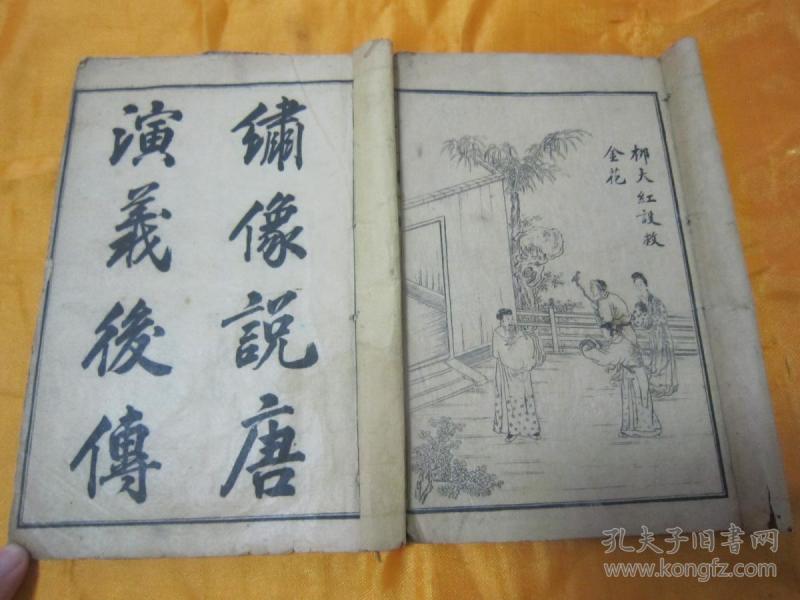 繡像説唐
演義後傳
柳大紅設救
金花
孔夫子旧书网
www.kongfz.com